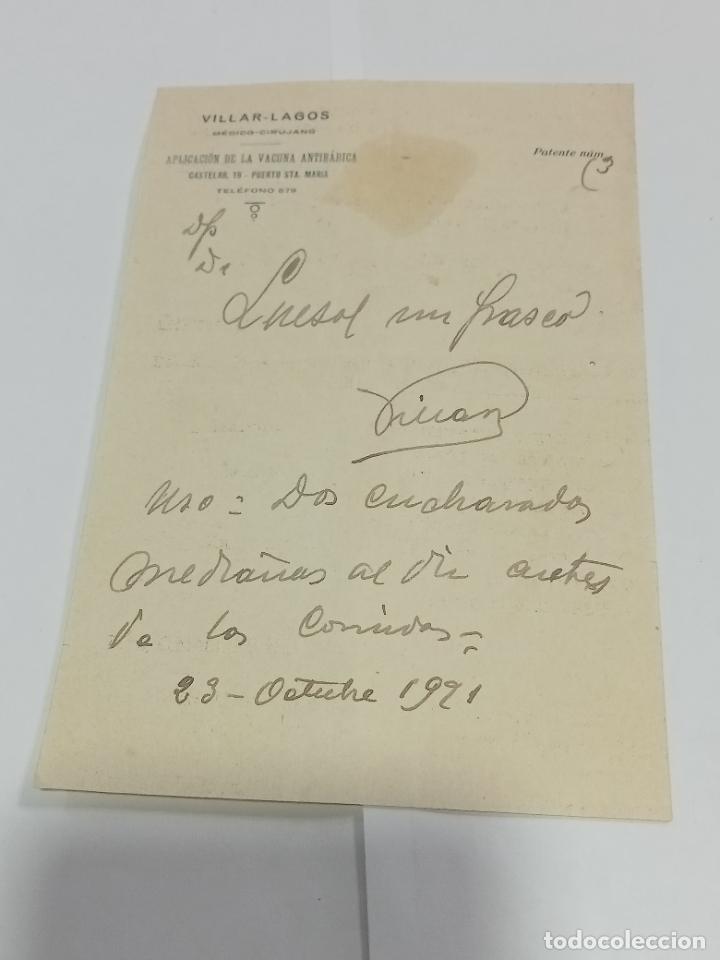 VILLAR-LAGOS
MÉDICO-CIRUJANO
APLICACIÓN DE LA VACUNA ANTIRÁBICA
CASTELAR, 19 - PUERTO STA. MARIA
TELÉFONO 879
Patente núm
3
Dp
De
Luesol un frasco
Villar
Uso = Dos cucharadas
medianas al dia antes
de las comidas =
23 - Octubre 1921
todocoleccion